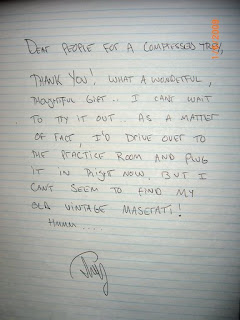 DEAR PEOPLE FOR A COMPRESSED TREY,
THANK YOU! WHAT A WONDERFUL,
THOUGHTFUL GIFT.. I CAN'T WAIT
TO TRY IT OUT.. AS A MATTER
OF FACT, I'D DRIVE OVER TO
THE PRACTICE ROOM AND PLUG
IT IN RIGHT NOW. BUT I
CAN'T SEEM TO FIND MY
OLD VINTAGE MASERATI!
HMMM....